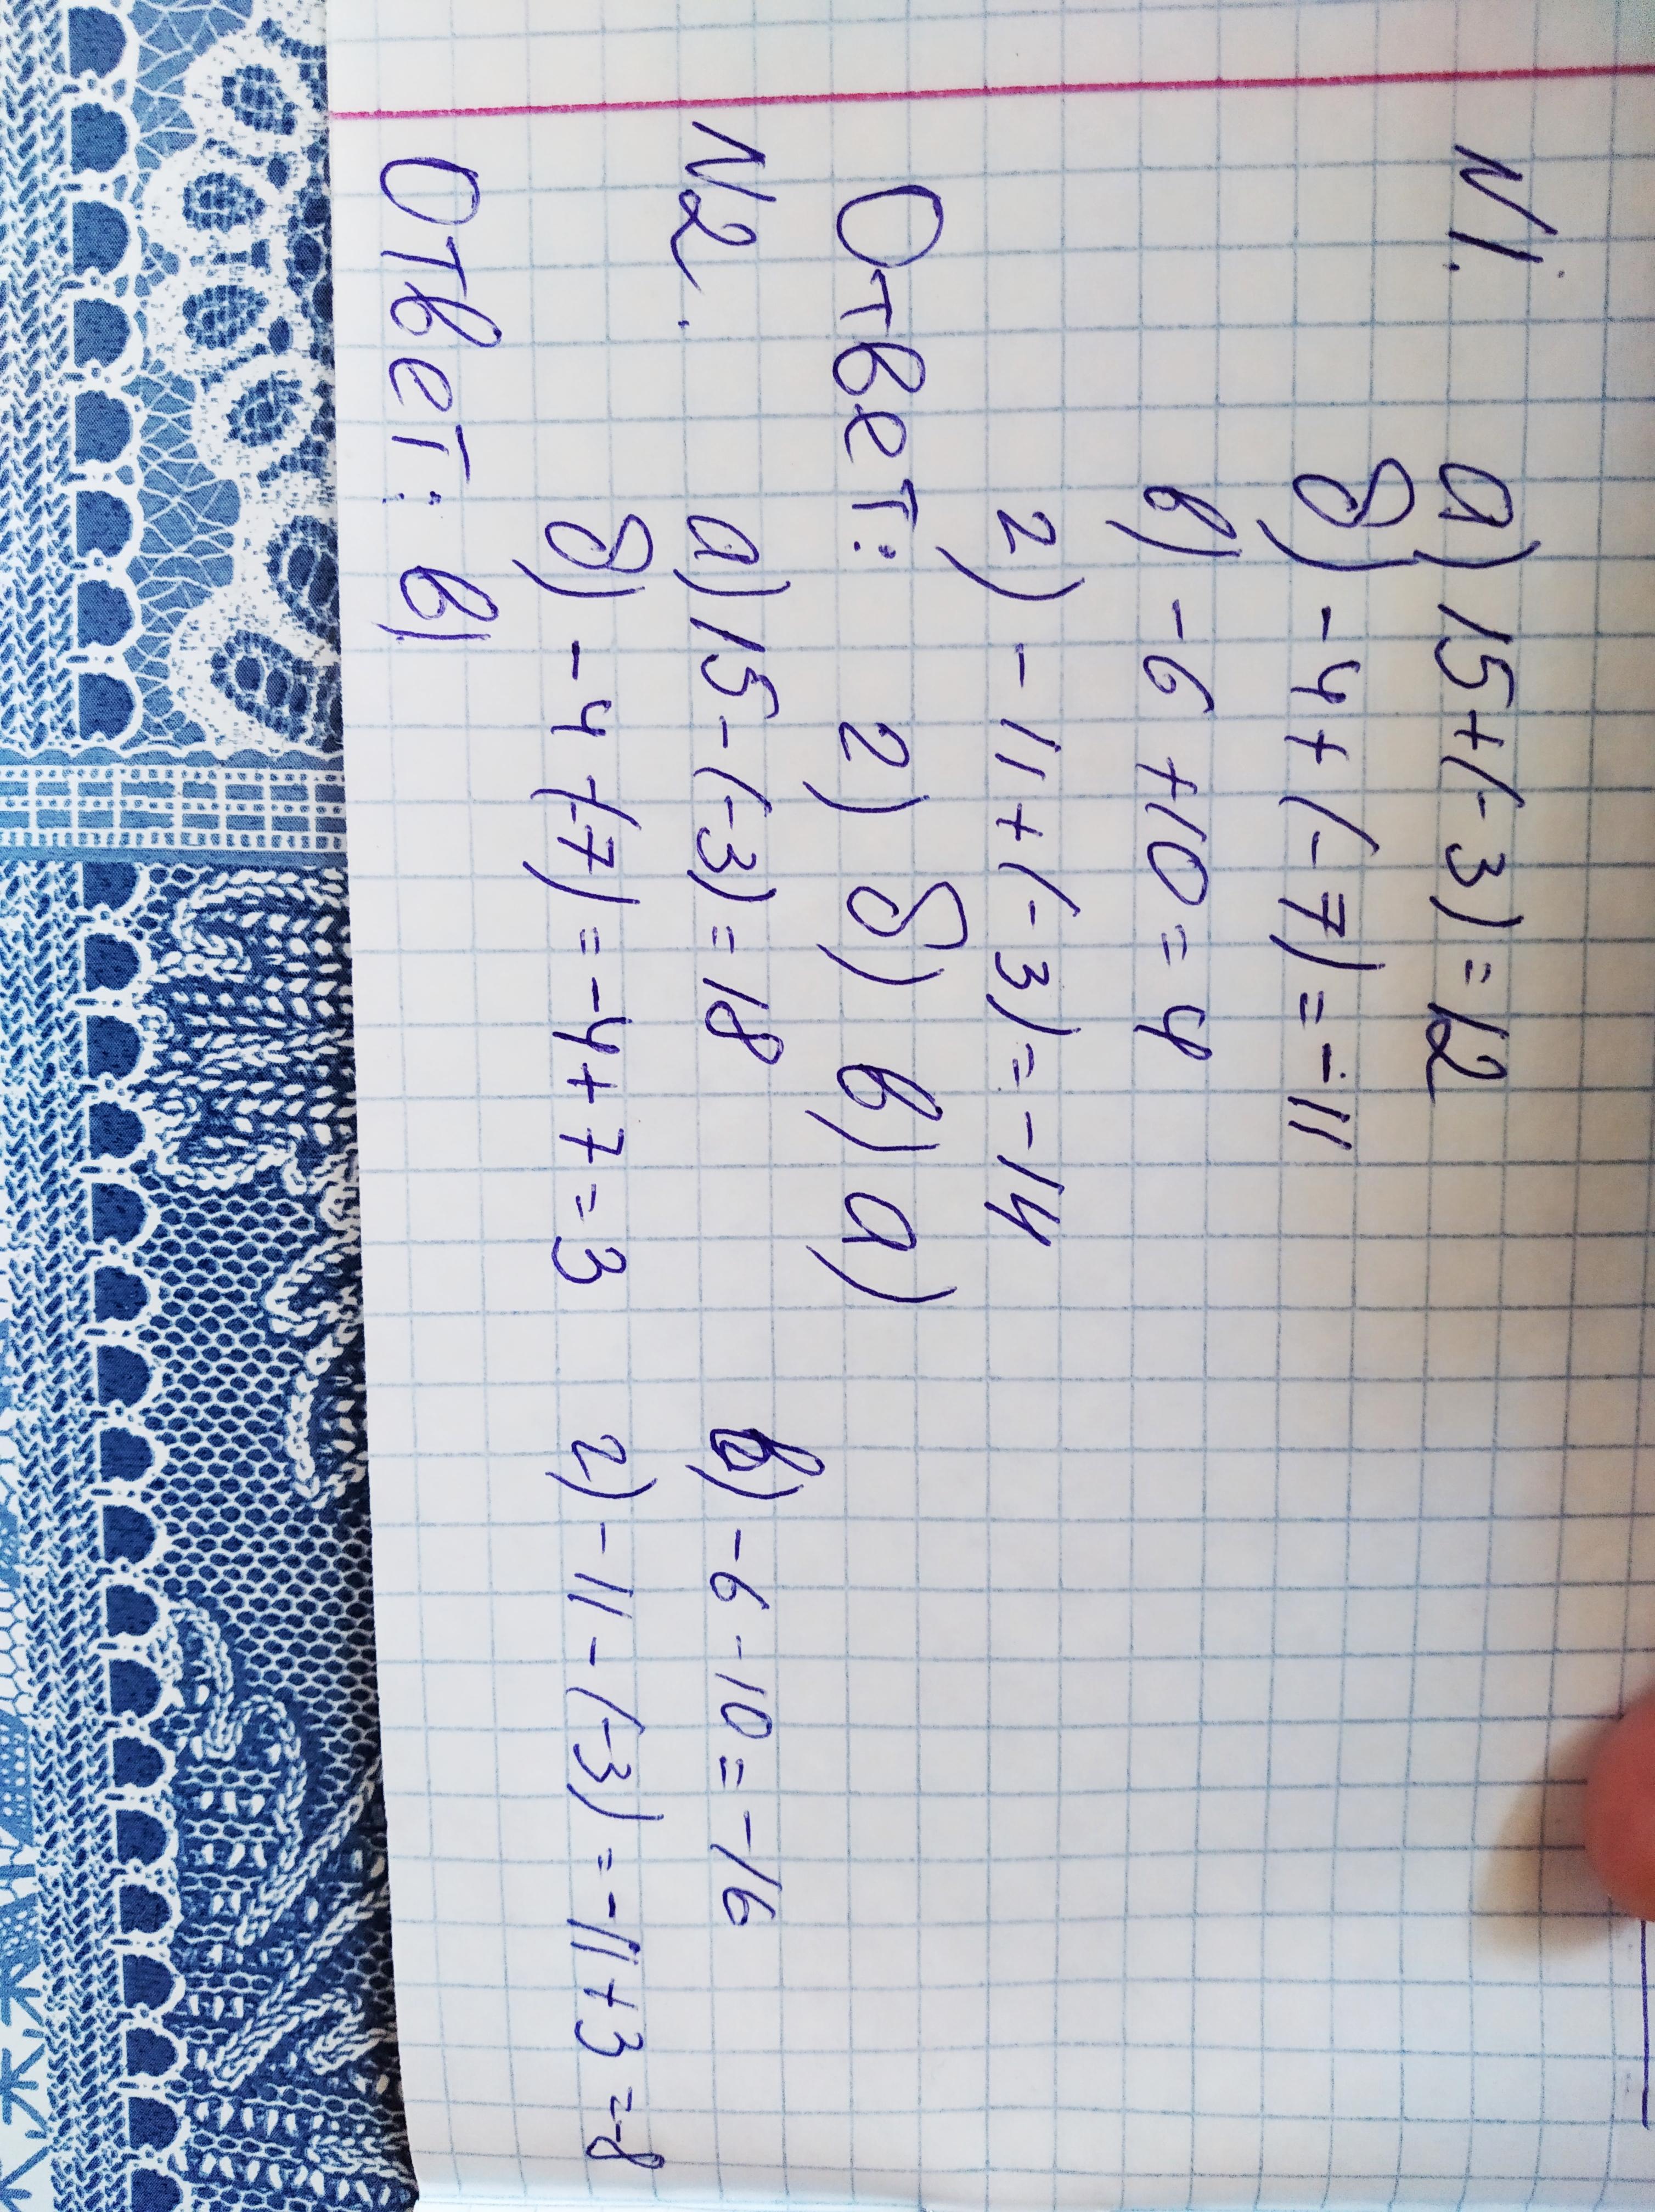 N1. а) 15+(-3)=12
б) -4+(-7)=-11
в) -6+10=4
г) -11+(-3)=-14
Ответ: г) б) в) а)
N2. а) 15-(-3)=18 в) -6-10=-16
б) -4-(-7)=-4+7=3 г) -11-(-3)=-11+3=-8
Ответ: в)